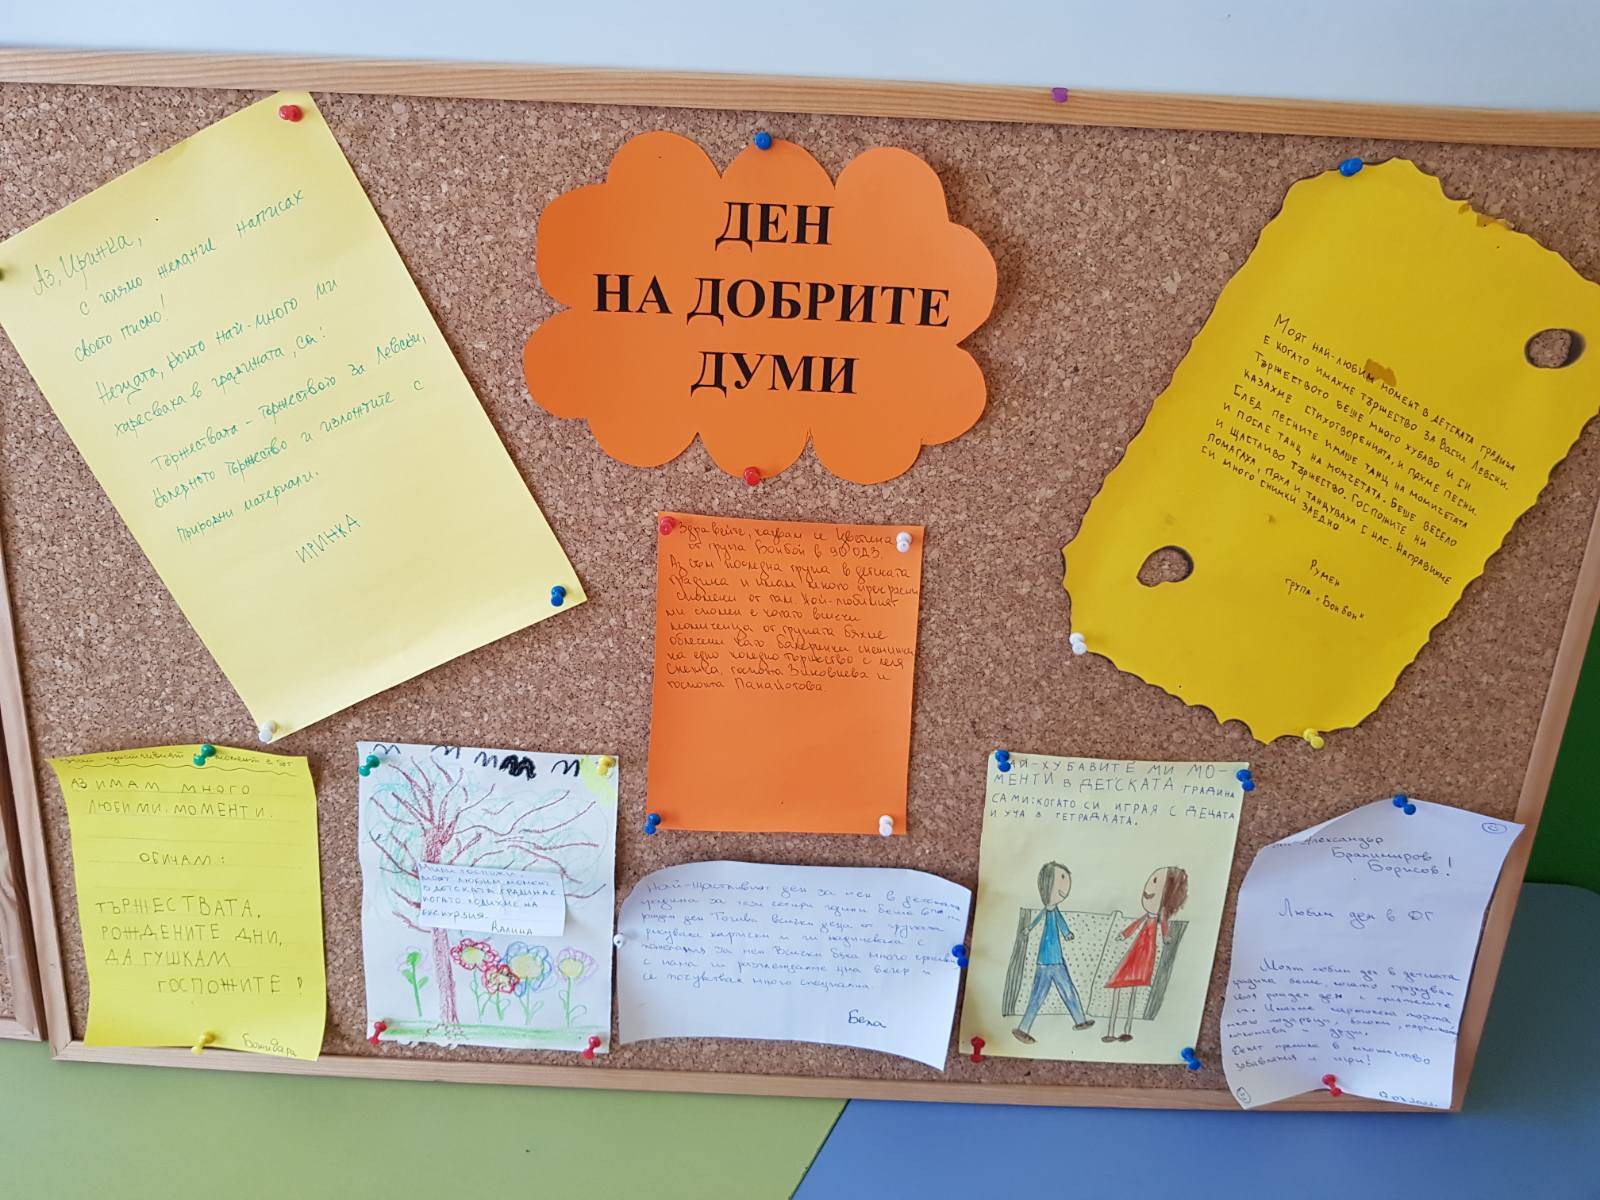 ДЕН
НА ДОБРИТЕ
ДУМИ
Аз, Иринка,
с голямо желание написах
своето писмо!
Нещата, които най-много ми
харесваха в градината, са:
тържествата - тържеството за Левски,
Коледното тържество и изложбите с
природни материали.
ИРИНКА
Моят най-любим момент в детската градина
е когато имахме тържество за Васил Левски.
Тържеството беше много хубаво и си
казахме стихотворенията, и пяхме песни.
След песните имаше танц на момичетата
и после танц на момчетата. Беше весело
и щастливо тържество. Госпожите ни
помагаха, пяха и танцуваха с нас. Направихме
си много снимки заедно.
Румен
група "Бонбон"
Здравейте, казвам се Цветина
от група Бонбон в 90 ОДЗ.
Аз съм последна група в детската
градина и имам много прекрасни
спомени от там. Най-любимият
ми спомен е когато всички
момиченца от групата бяхме
облечени като балеринки снежинки
на едно коледно тържество с леля
госпожа Зиновиева и
госпожа Панайотова.
Най-щастливият момент в
АЗ ИМАМ МНОГО
ЛЮБИМИ МОМЕНТИ.
ОБИЧАМ:
ТЪРЖЕСТВАТА,
РОЖДЕНИТЕ ДНИ,
ДА ГУШКАМ
ГОСПОЖИТЕ!
Божидара
Мили госпожи,
моят любим момент
в детската градина е
когато ходихме на
екскурзия.
Калина
Най-щастливият ден за мен в детската
градина за тези четири години беше
рожден ден. Тогава всички деца от групата
рисуваха картички и ги надписваха с
пожелания за мен. Всички бяха много красиви
с мама ги разглеждахме цяла вечер и
се почувствах много специална.
Бела
НАЙ-ХУБАВИТЕ МИ МО-
МЕНТИ В ДЕТСКАТА ГРАДИНА
СА МИ: КОГАТО СИ ИГРАЯ С ДЕЦАТА
И УЧА В ТЕТРАДКАТА.
Александър
Бранимиров
Борисов!
Любим ден в ДГ
Моят любим ден в детската
градина беше, когато празнувах
своя рожден ден с приятелите
си. Имахме картонена торта,
много подаръци, балони,
и игри!